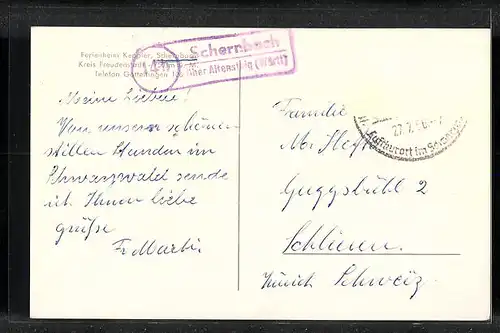 Ferienheim Kappler, Schernbach
Kreis Freudenstadt
Telefon Göttelfingen
Schernbach
über Altensteig (Württ)
27.7.
Luftkurort im Schwarzwald
Meine Lieben!
Von unseren schönen
stillen Stunden im
Schwarzwald sende
ich Ihnen liebe
Grüße
Fr. Martin
Familie
M. Heff
Guggsbühl 2
Schlieren.
Zürich Schweiz